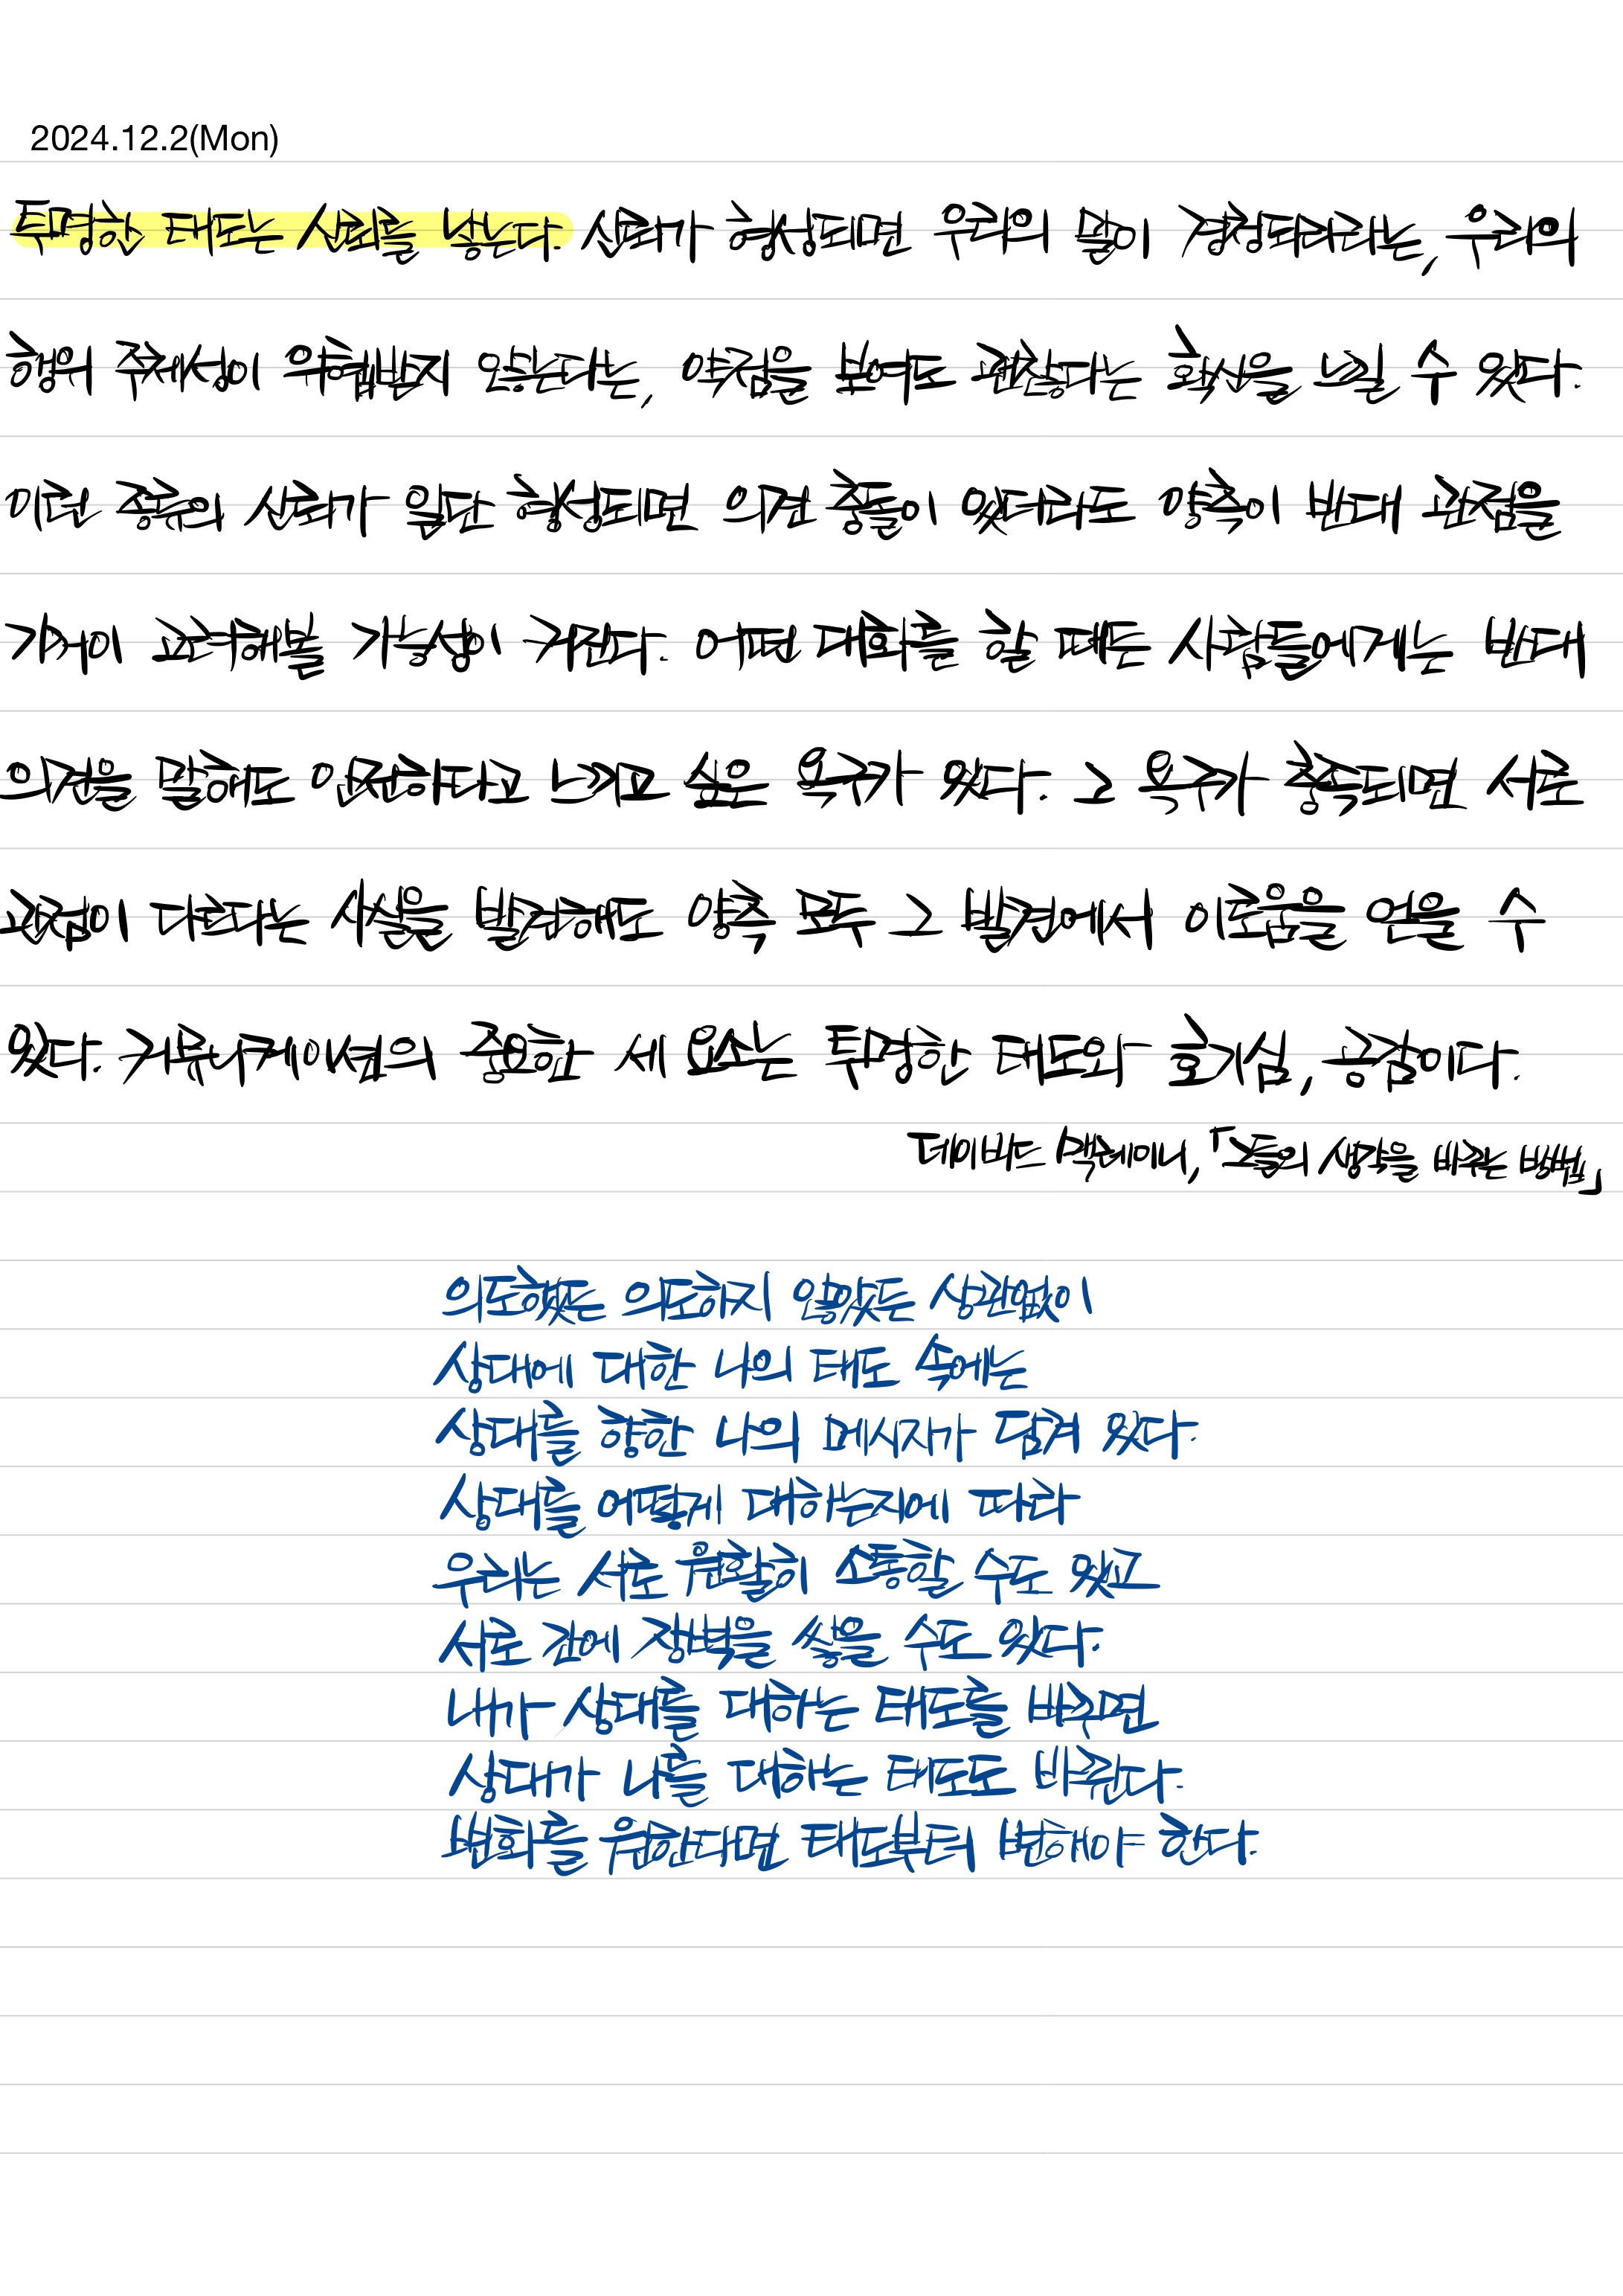 2024.12.2(Mon)
투명한 태도는 신뢰를 낳는다. 신뢰가 형성되면 우리의 말이 경청되리라는, 우리의
행위 주체성이 위협받지 않는다는, 약점을 보여도 괜찮다는 확신을 느낄 수 있다.
이런 종류의 신뢰가 일단 형성되면 의견 충돌이 있더라도 양측이 반대 관점을
기꺼이 고려해볼 가능성이 커진다. 어떤 대화를 할 때든 사람들에게는 반대
의견을 말해도 안전하다고 느끼고 싶은 욕구가 있다. 그 욕구가 충족되면 서로
관점이 다르다는 사실을 발견해도 양측 모두 그 발견에서 이로움을 얻을 수
있다. 커뮤니케이션의 중요한 세 요소는 투명한 태도와 호기심, 공감이다.
데이비드 맥레이니, 「그들의 생각을 바꾸는 방법」
의도했든 의도하지 않았든 상관없이
상대에 대한 나의 태도 속에는
상대를 향한 나의 메시지가 담겨 있다.
상대를 어떻게 대하는지에 따라
우리는 서로 원활히 소통할 수도 있고
서로 간에 장벽을 쌓을 수도 있다.
내가 상대를 대하는 태도를 바꾸면
상대가 나를 대하는 태도도 바뀐다.
변화를 원한다면 태도부터 변해야 한다.